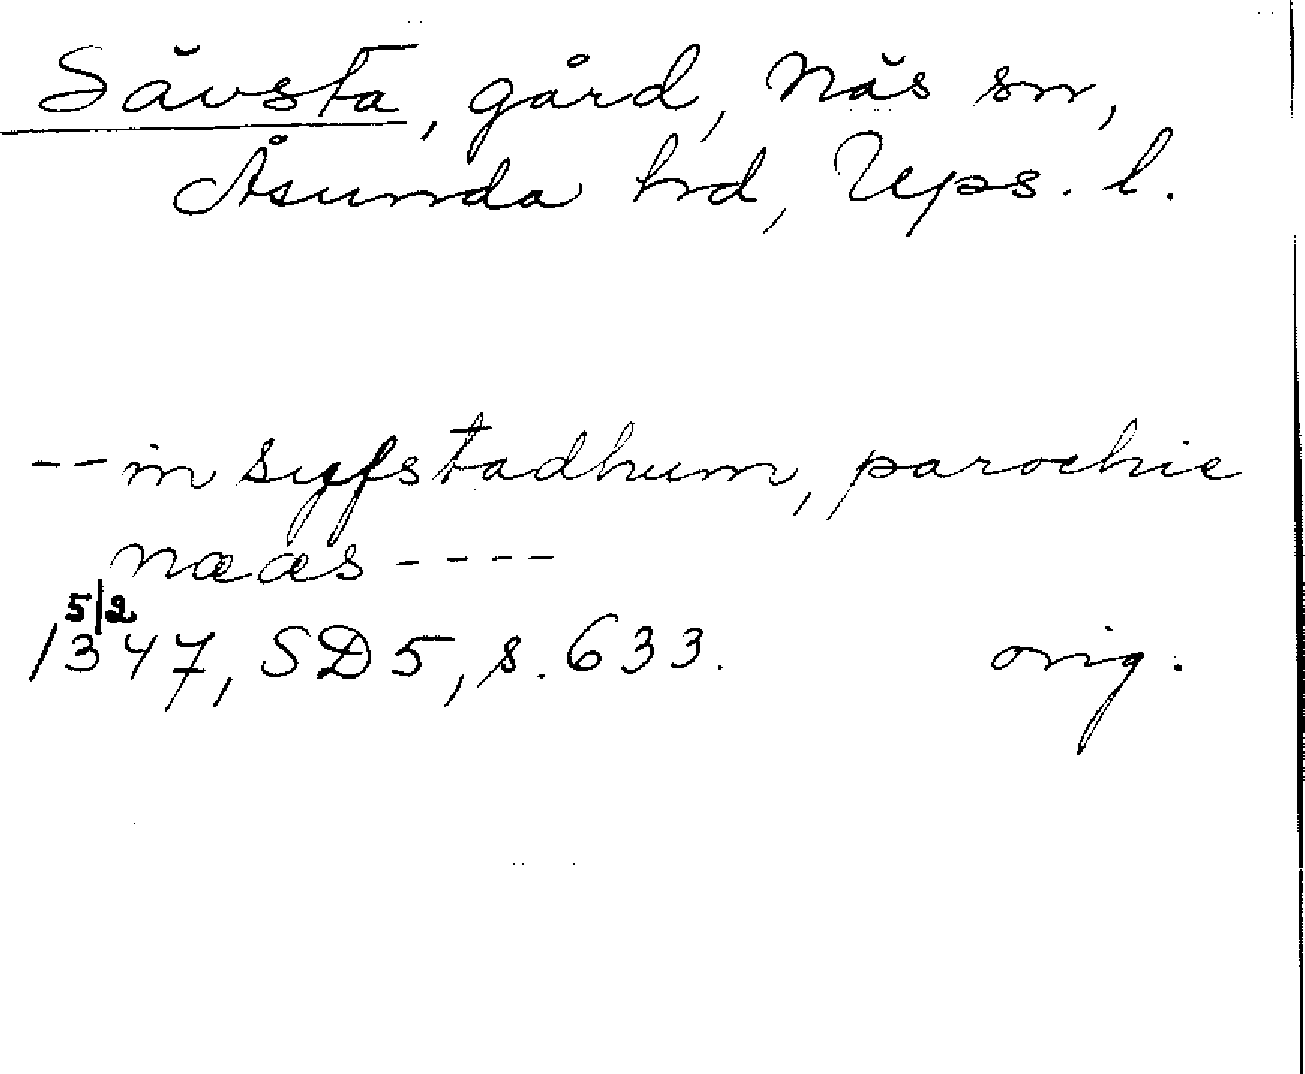 Sävsta, gård, Näs sn,
Åsunda hd, Ups. l.
-- in syffstadhum, parochie
næas ----
5/2
1347, SD 5, s. 633. orig.